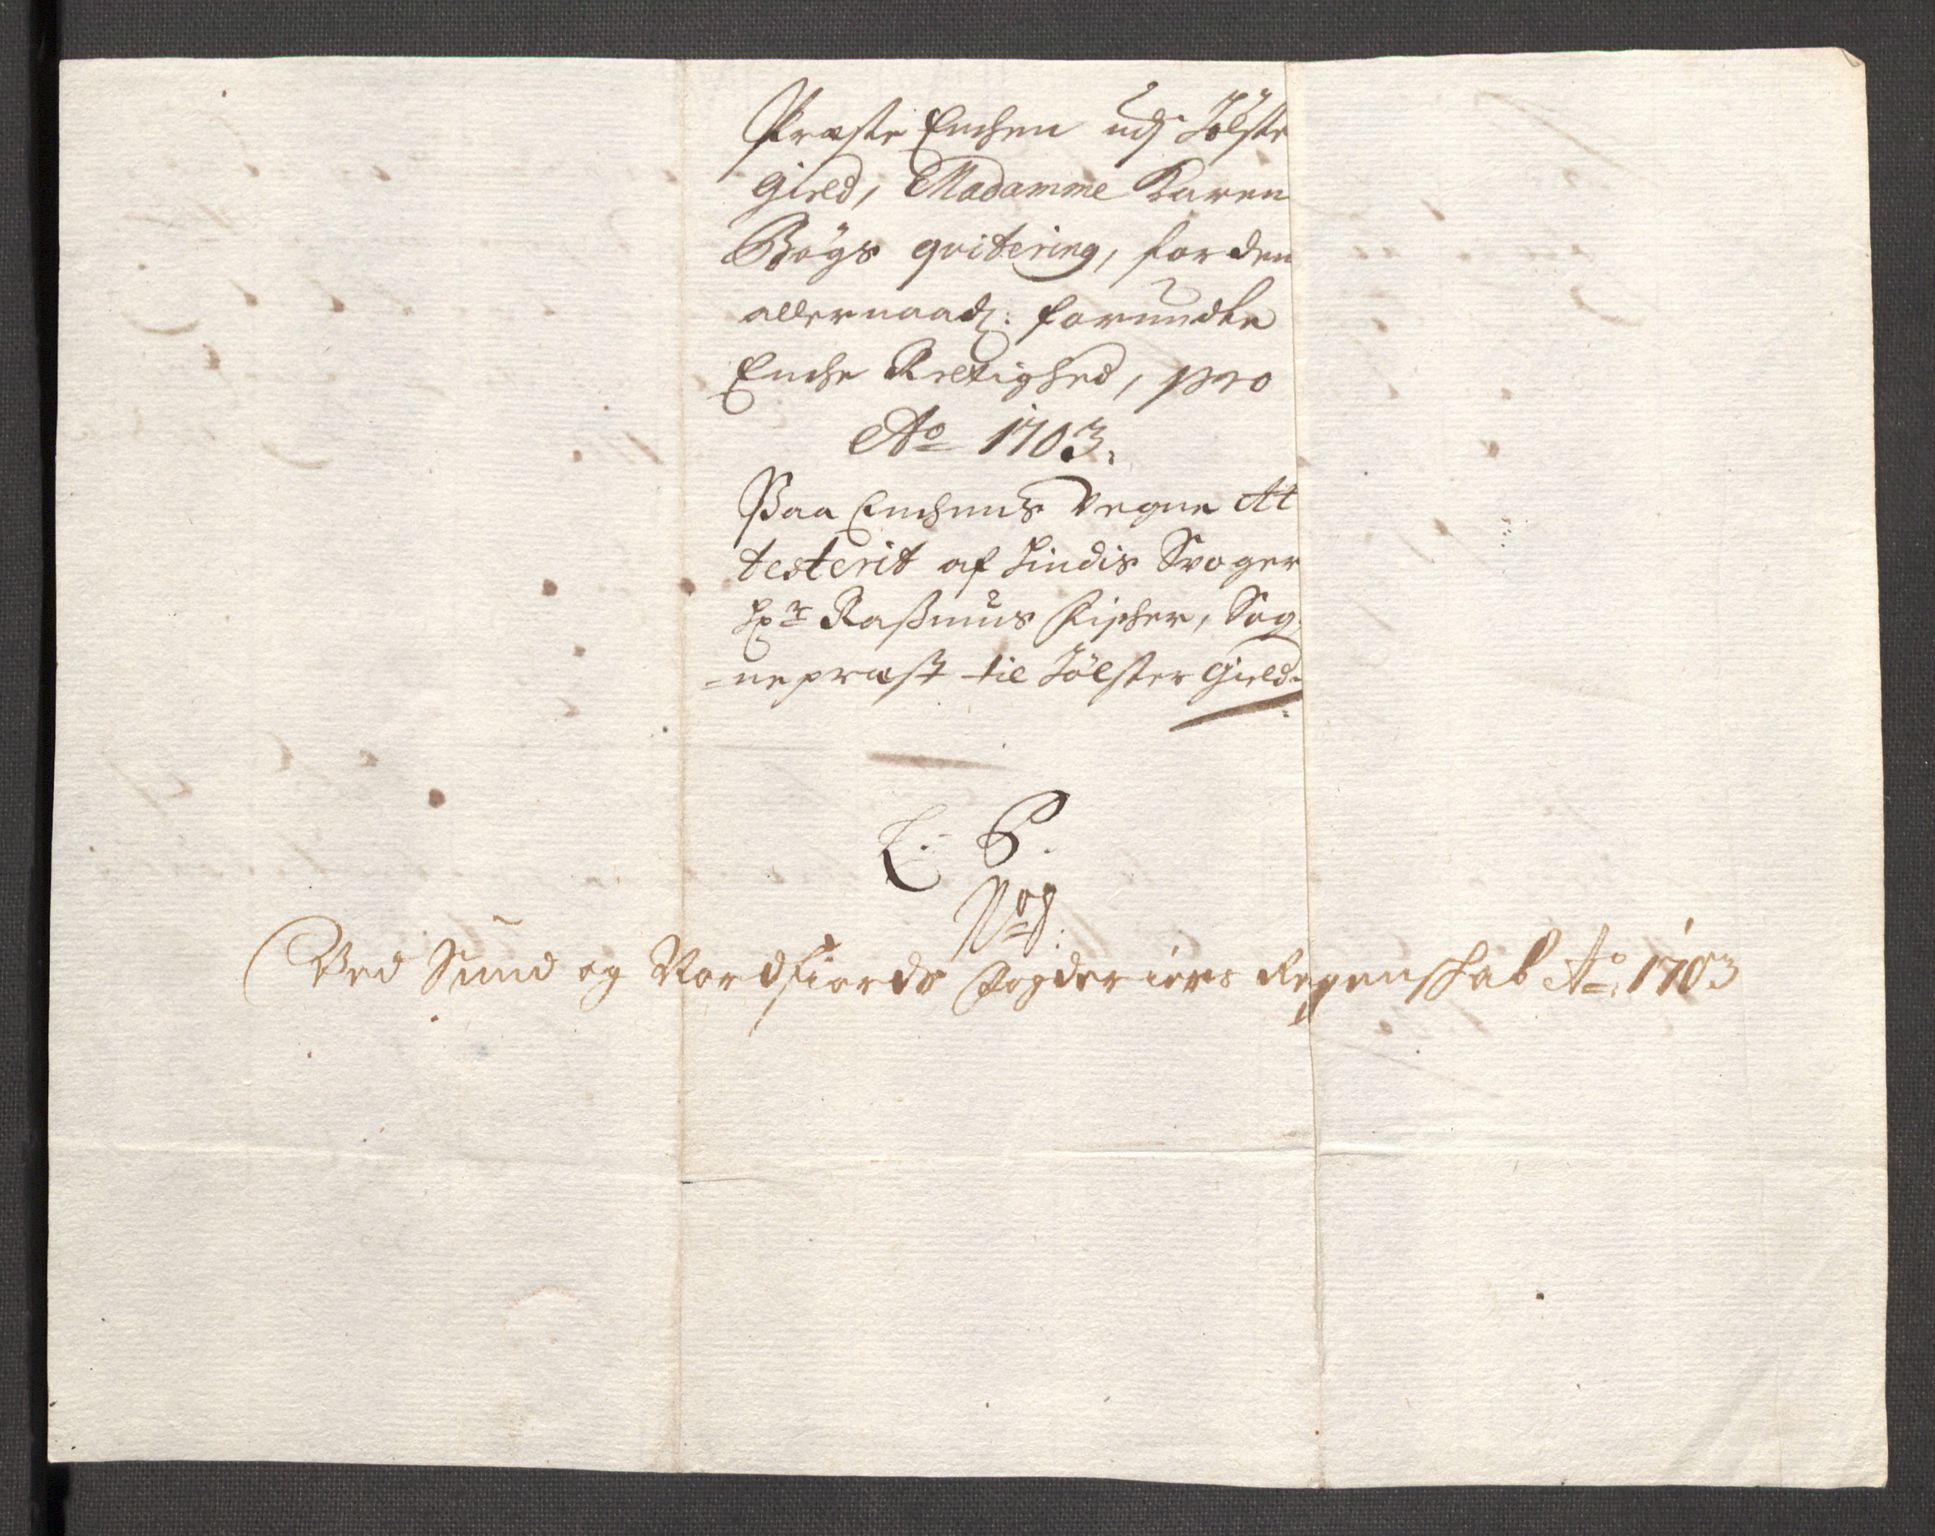 Præste Enchen udj Jölster
Gield, Madamme Karen
Bögs qvitering, for den
allernaad: forundte
Enche Rettighed, pro
Ao 1703.
Paa Enchens Vegne At
testerit af hindis Svoger
Hr Rasmus Fischer, Sog¬
=nepræst til Jölster Gield.
L. 6.
No
Ved Sund og Nordfiords Fogderiers Regenschab Ao. 1703